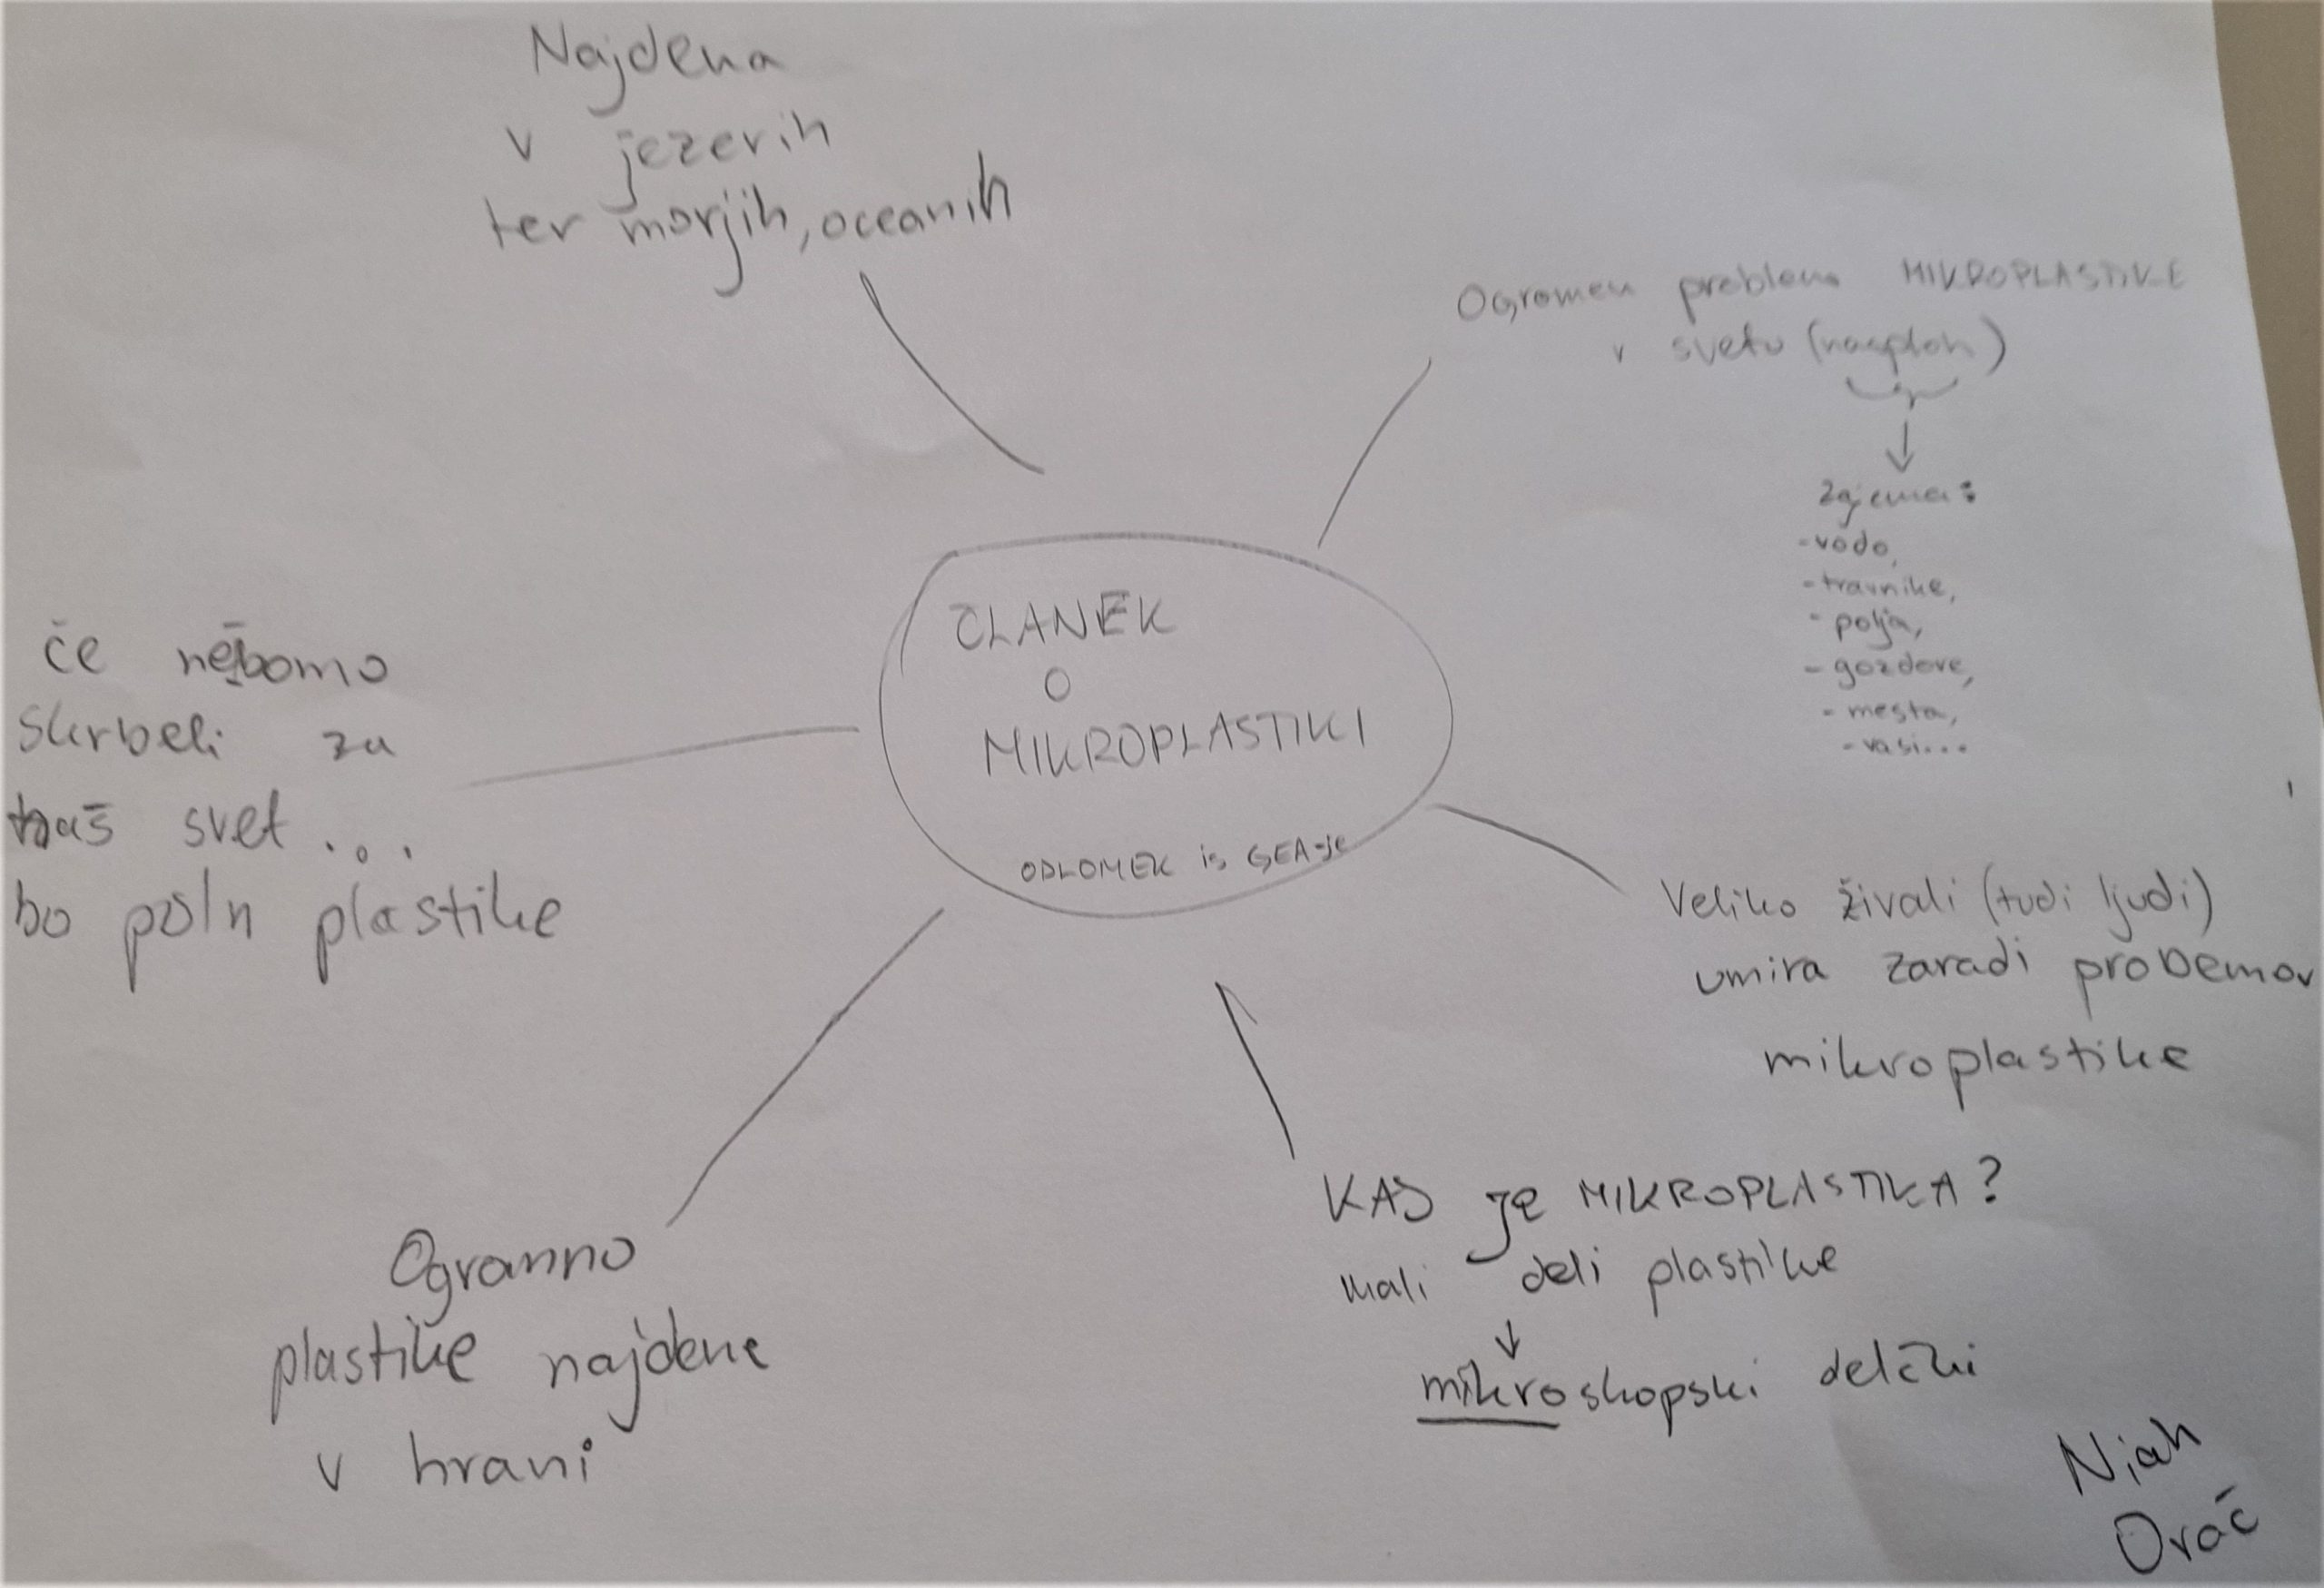 Najdena
v jezerih
ter morjih, oceanih
Ogromen problem MIKROPLASTIKE
v svetu (nasploh)
Zajema:
-vodo,
-travnike,
-polja,
-gozdove,
-mesta,
-vasi...
ČLANEK
O
MIKROPLASTIKI
ODLOMEK is GEA-je
če nebomo
skrbeli za
naš svet...
bo poln plastike
Veliko živali (tudi ljudi)
umira zaradi probemov
mikroplastike
KAJ je MIKROPLASTIKA?
mali deli plastike
↓
mikroskopski delčki
Ogramno
plastike najdene
v hrani
Njah
Orač